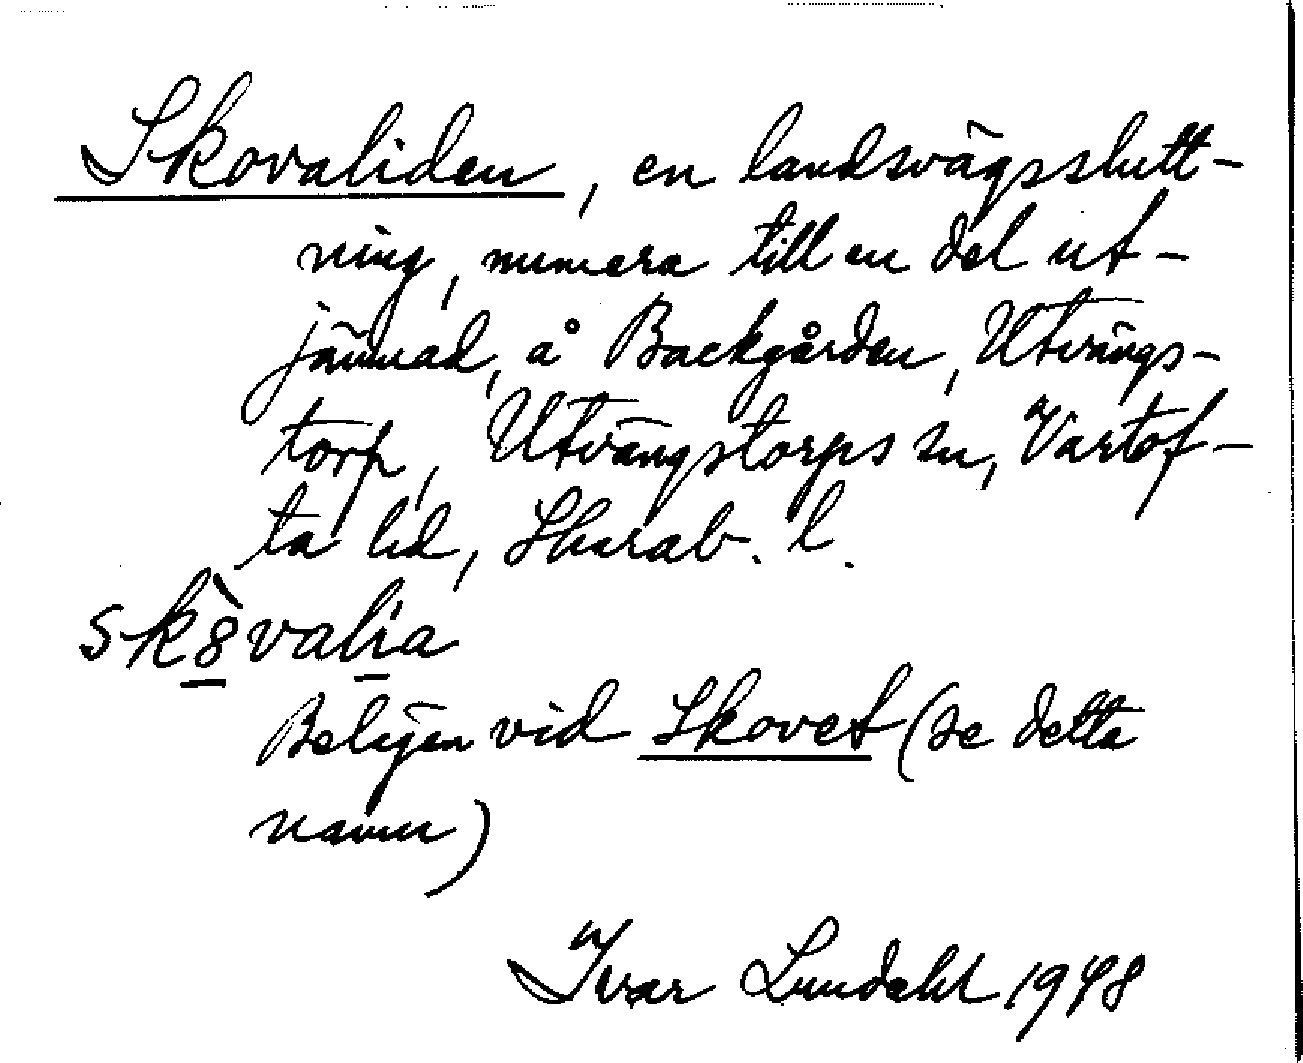 Skovaliden, en landsvägsslutt-
ning, numera till en del ut-
jämnad, å Backgården, Utvängs-
torp, Utvängstorps sn, Vartof-
ta hd, Skarab. l.
sk8̀valia
Belägen vid Skovet (se detta
namn)
Ivar Lundahl 1948